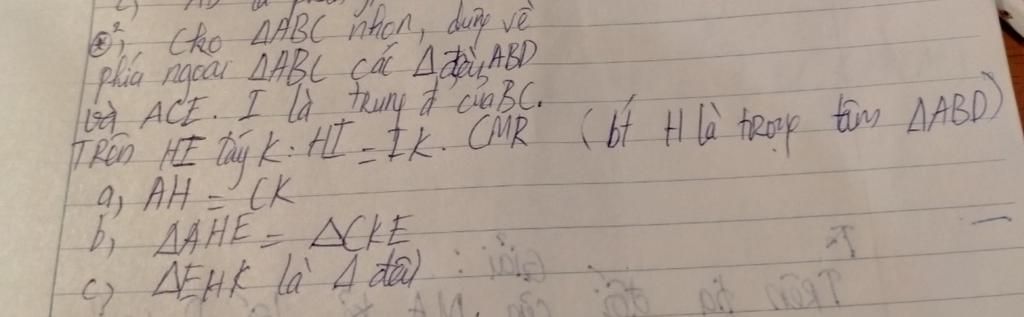 *², Cho ΔABC nhọn, dựng về
phía ngoài ΔABC các Δ đều ABD
và ACE. I là trung đ của BC.
Trên HI lấy K: HI = IK. CMR (bt H là trọng tâm ΔABD)
a, AH = CK
b, ΔAHE = ΔCKE
c, ΔEHK là Δ đều